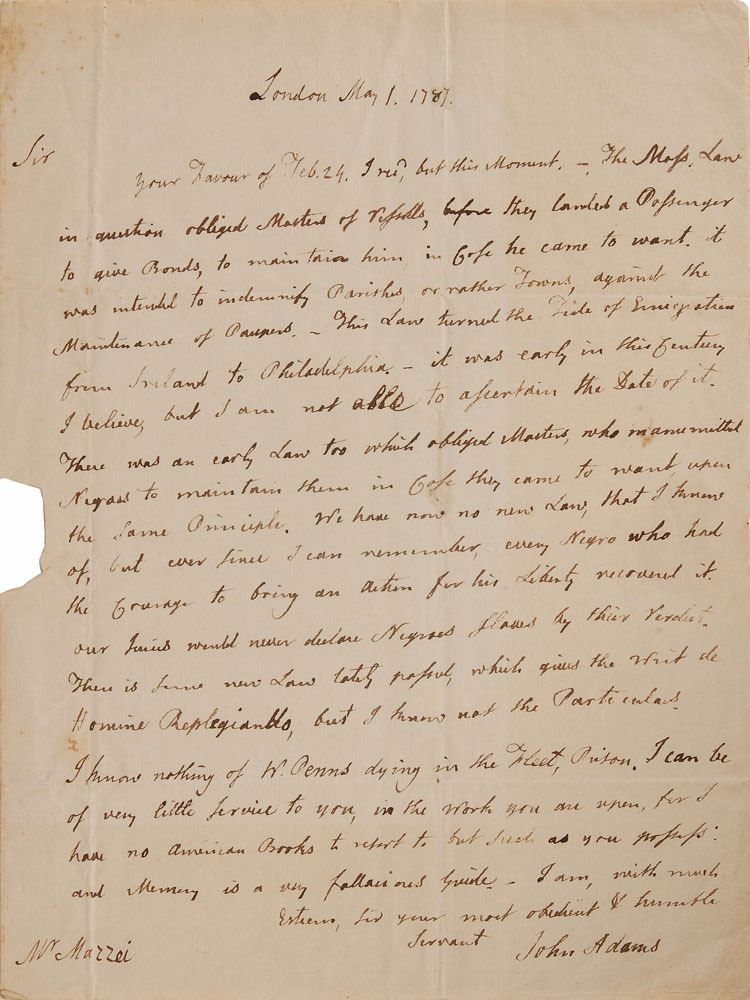 London May 1. 1787.
Sir
your Favour of Feb. 24. I recd, but this Moment. — The Mass. Law
in question obliged Masters of Vessells, before they landed a Passenger
to give Bonds, to maintain him, in Case he came to want. it
was intended to indemnify Parishes, or rather Towns, against the
Maintenance of Paupers. — This Law turned the Tide of Emigration
from Ireland to Philadelphia. — it was early in this Century
I believe, but I am not able to ascertain the Date of it.
There was an early Law too which obliged Masters, who manumitted
Negroes to maintain them in Case they came to want, upon
the Same Principle. We have now no new Law, that I know
of, but ever since I can remember, every Negro who had
the Courage to bring an Action for his Liberty recovered it.
our Juries would never declare Negroes Slaves by their Verdict.
There is some new Law lately passed, which gives the Writ de
Homine Replegiando, but I know not the Particulars.
I know nothing of W. Penns dying in the Fleet, Prison. I can be
of very little Service to you, in the Work you are upon, for I
have no American Books to resort to but Such as you possess:
and Memory is a very fallacious Guide. — I am, with much
Esteem, Sir your most obedient & humble
Servant John Adams
Mr Mazzei